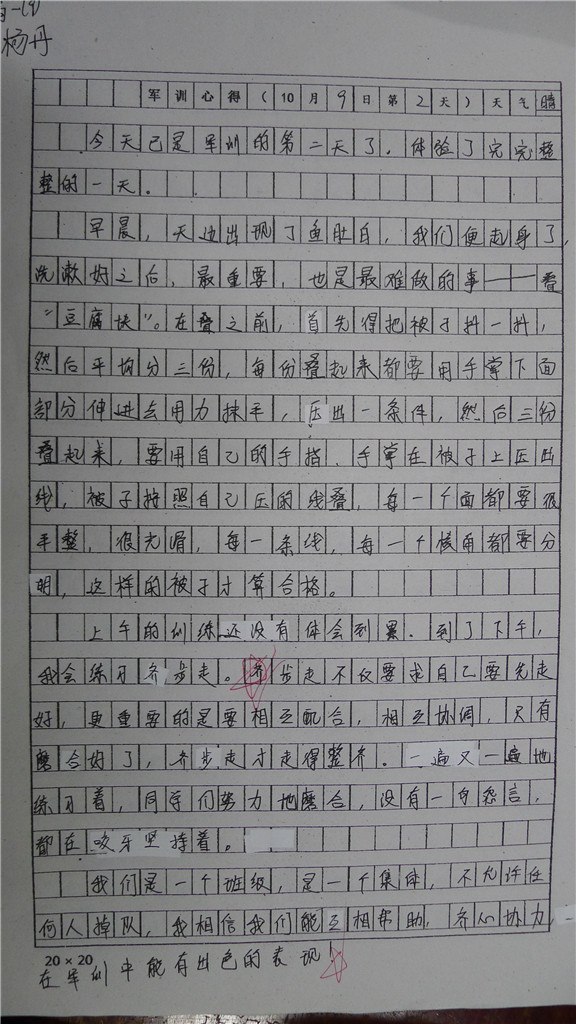 杨丹
军训心得（10月9日第2天）天气晴
今天已是军训的第二天了，体验了完完整
整的一天。
早晨，天边出现了鱼肚白，我们便起身了，
洗漱好之后，最重要，也是最难做的事——叠
“豆腐块”。在叠之前，首先得把被子抖一抖，
然后平均分三份，每份叠起来都要用手掌下面
部分伸进去用力抹平，压出一条件，然后三份
叠起来，要用自己的手指、手掌在被子上压出
线，被子按照自己压的线叠，每一个面都要很
平整，很光滑，每一条线，每一个棱角都要分
明，这样的被子才算合格。
上午的训练还没有体会到累．到了下午，
我会练习齐步走。齐步走不仅要求自己要先走
好，更重要的是要相互配合，相互协调，只有
磨合好了，齐步走才走得整齐．一遍又一遍地
练习着，同学们努力地磨合，没有一句怨言，
都在咬牙坚持着。
我们是一个班级，是一个集体，不允许任
何人掉队，我相信我们能互相帮助，齐心协力
20×20
在军训中能有出色的表现！